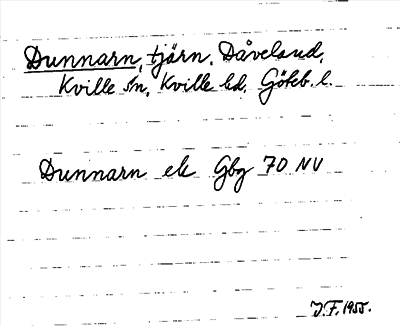 Dunnarn, tjärn, Dåveland,
Kville sn, Kville hd, Göteb. l.
Dunnarn ek Gbg 70 NV
J.F. 1955.